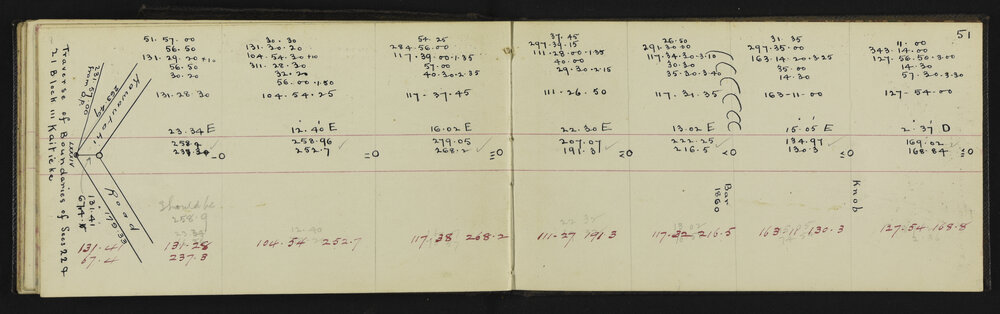 51
Traverse of Boundaries of Secs 22 &
21 Block III Kaitieke
281.57.00
from DP
265.49
Kawautahi
Road
170.33
131.41
674.5
131.4
67.4
51.57.00
56.50
131.29.20 +10
56.50
30.20
131.28.30
23.34 E
258.2
237.30
Should be
258.9
23.34
131.28
237.3
30.30
131.20.20
104.54.30 +10
311.28.30
32.20
56.00.1.50
104.54.25
12.40 E
258.96
252.7
12.40
104.54 252.7
54.25
284.56.00
117.39.00.1.35
57.00
40.30.2.35
117.37.45
16.02 E
279.05
268.2
117.38 268.2
37.45
297.39.15
111.28.00.1.35
40.00
29.30.2.15
111.26.50
22.30 E
207.07
191.3
22.32
111.27 191.3
26.50
291.30.00
117.34.30.3.10
30.30
35.30.3.40
117.31.35
13.02 E
222.25
216.5
Bar
1860
13.02
117.32 216.5
31.35
297.35.00
163.14.20.3.25
35.00
14.30
163.11.00
15.05 E
134.97
130.3
Knob
163.11 130.3
11.00
343.14.00
127.56.50.3.00
14.30
57.30.3.30
127.54.00
2.37 D
169.02
168.84
127.54 168.8